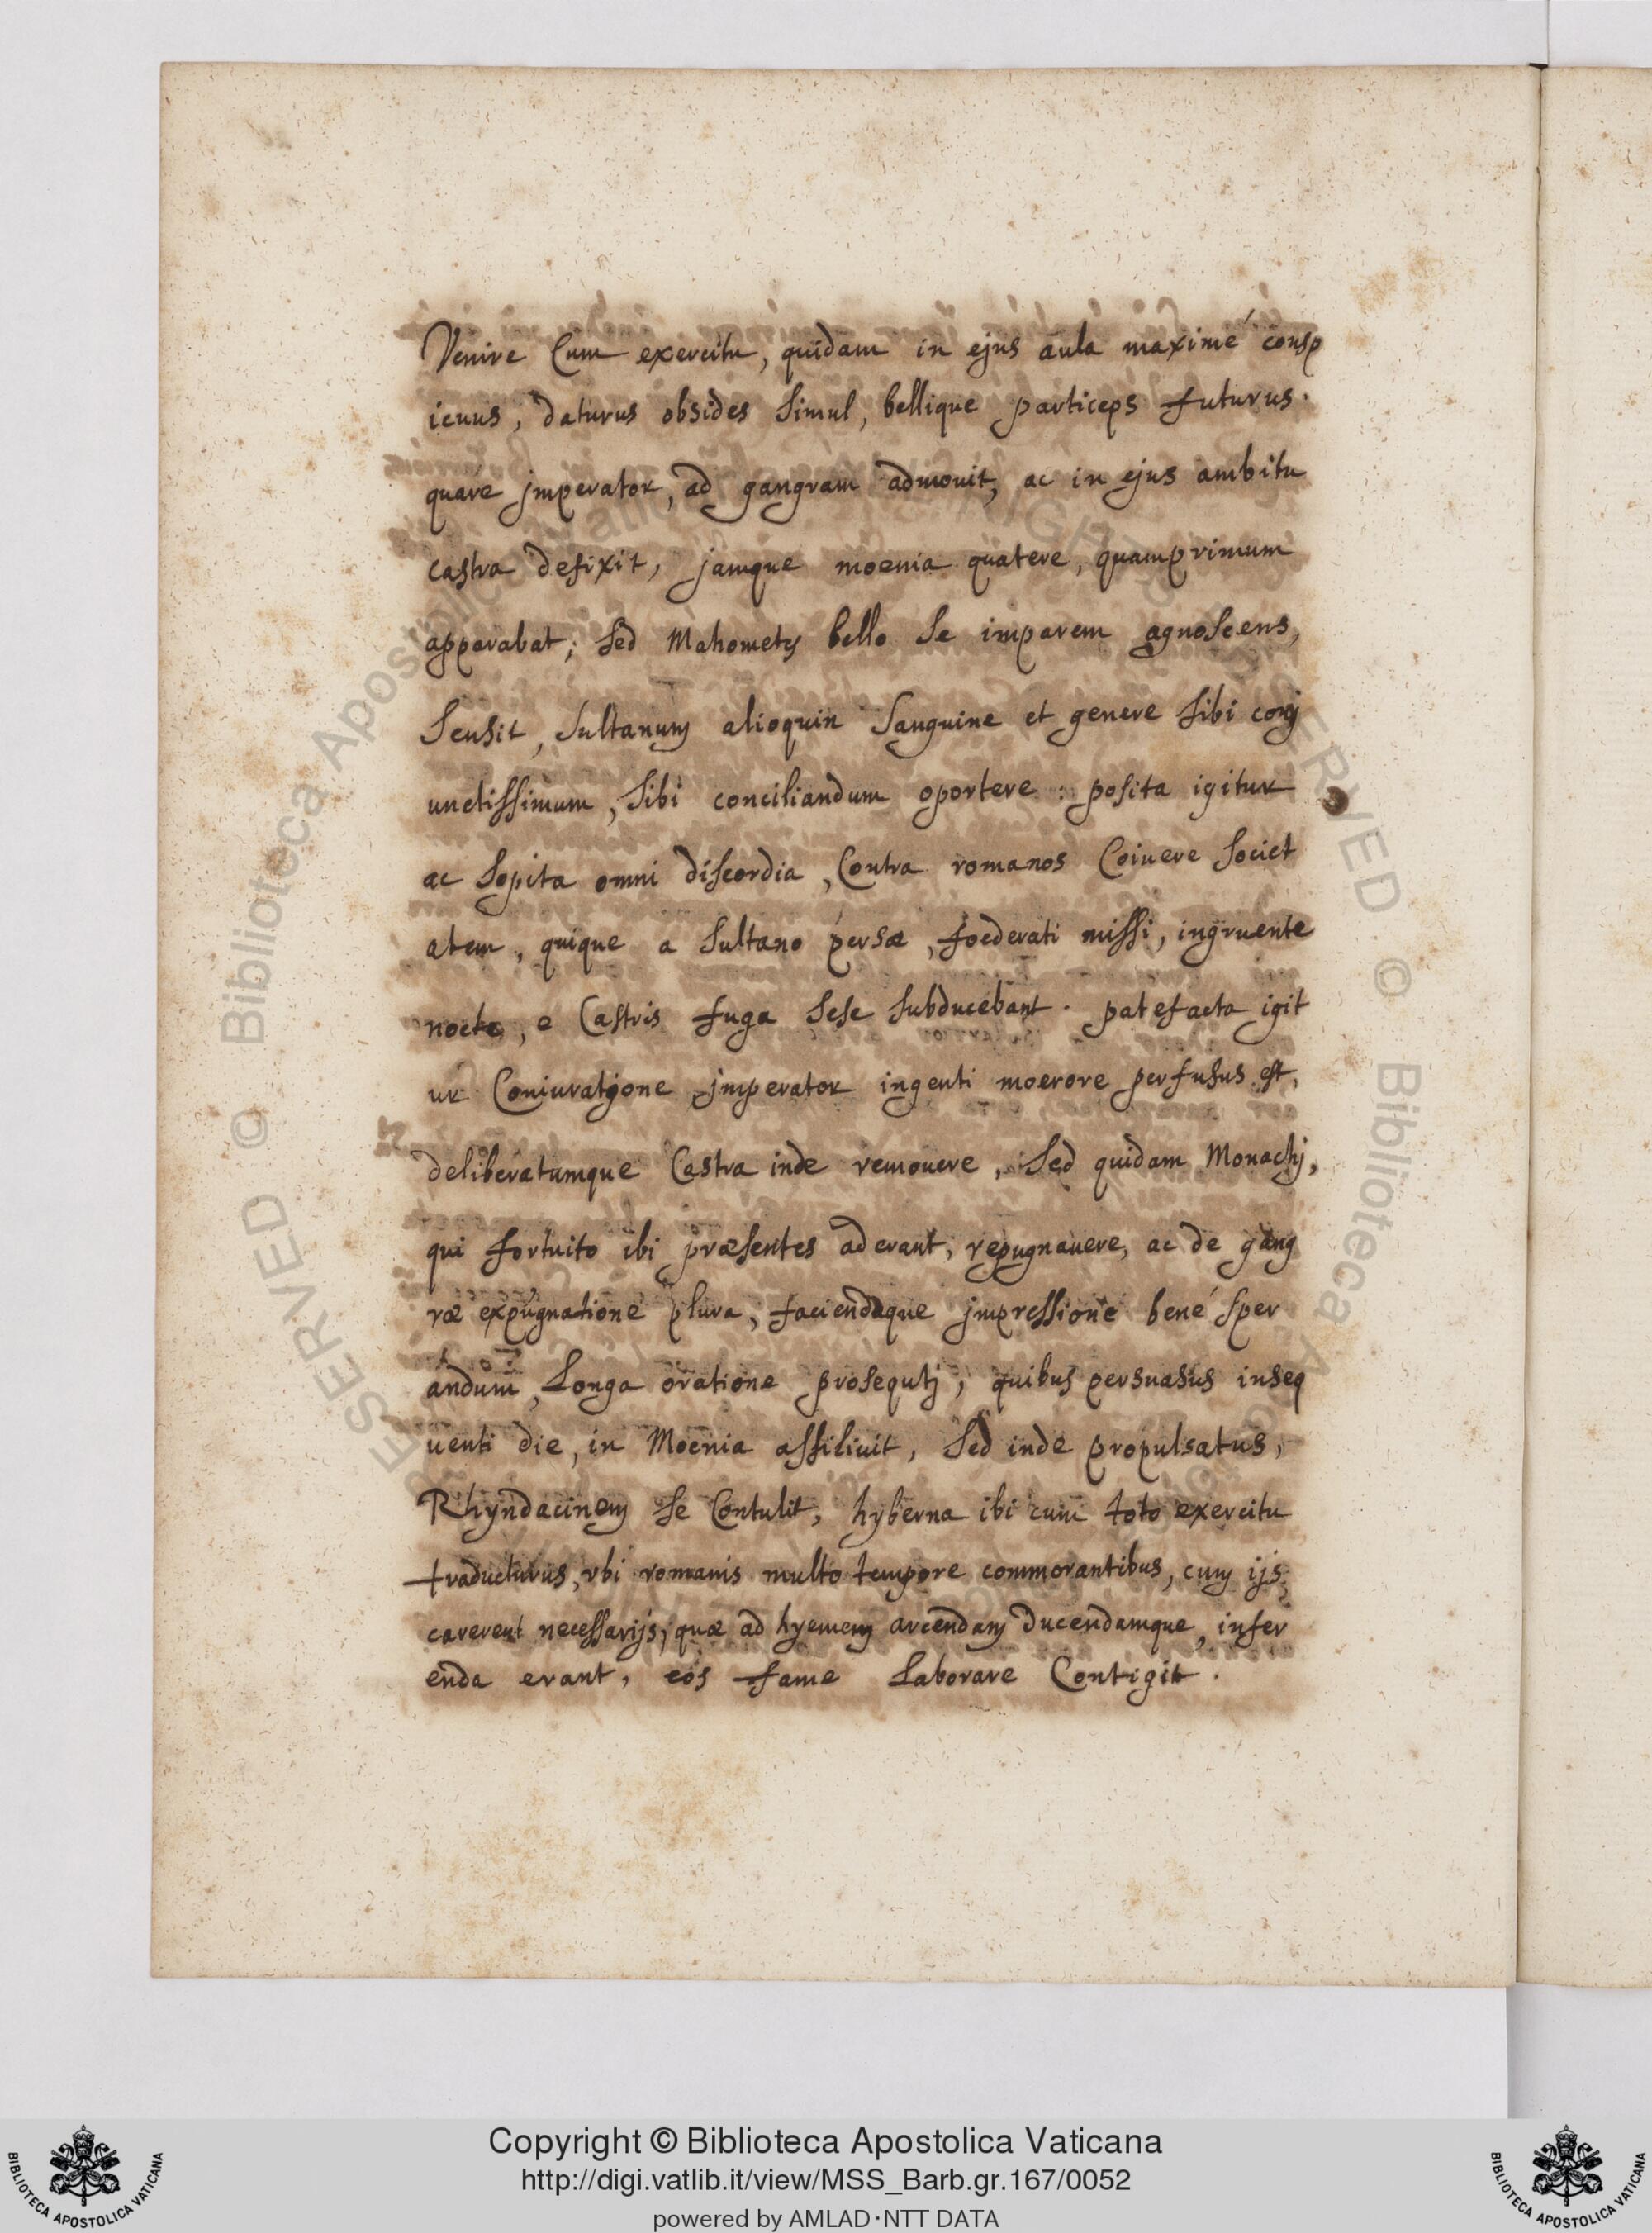 Venire Cum exercitu, quidam in ejus aula maximé consp
icuus, daturus obsides simul, bellique particeps futurus.
quare jmperator, ad gangram admouit, ac in ejus ambitu
castra defixit, jamque moenia quatere, quamprimum
apparabat; sed Mahometus bello se imparem agnoscens,
sensit, sultanum alioquin sanguine et genere sibi conj
unctissimum, sibi conciliandum oportere: posita igitur
ac sopita omni discordia, Contra romanos Coiuere societ
atem, quique a sultano persæ, foederati missi, ingruente
nocte, e Castris fuga sese subducebant. patefacta igit
ur Coniuratione jmperator ingenti moerore perfusus est,
deliberatumque Castra inde remouere, sed quidam Monachj,
qui fortuito ibi præsentes aderant, repugnauere, ac de gang
ræ expugnatione plura, faciendaque jmpressione bené sper
andum, Longa oratione prosequtj, quibus persuasus inseq
uenti die, in Moenia assiliuit, sed inde propulsatus,
Rhyndacinem se Contulit, hyberna ibi cum toto exercitu
traducturus, vbi romanis multo tempore commorantibus, cum ijs,
carerent necessarijs, quæ ad hyemem arcendam ducendamque, infer
enda erant, eos fame Laborare Contigit.
Copyright © Biblioteca Apostolica Vaticana
http://digi.vatlib.it/view/MSS_Barb.gr.167/0052
powered by AMLAD·NTT DATA